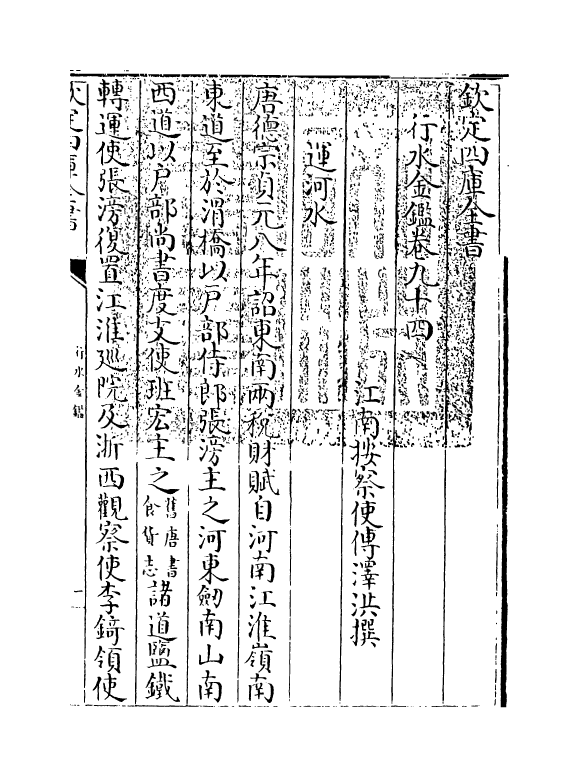 欽定四庫全書
行水金鑑卷九十四
江南按察使傅澤洪撰
運河水
唐德宗貞元八年詔東南兩稅財賦自河南江淮嶺南
東道至於渭橋以戶部侍郎張滂主之河東劒南山南
西道以戶部尚書度支使班宏主之舊唐書食貨志諸道鹽鐵
轉運使張滂復置江淮廵院及浙西觀察使李錡領使
欽定四庫全書
行水金鑑
一